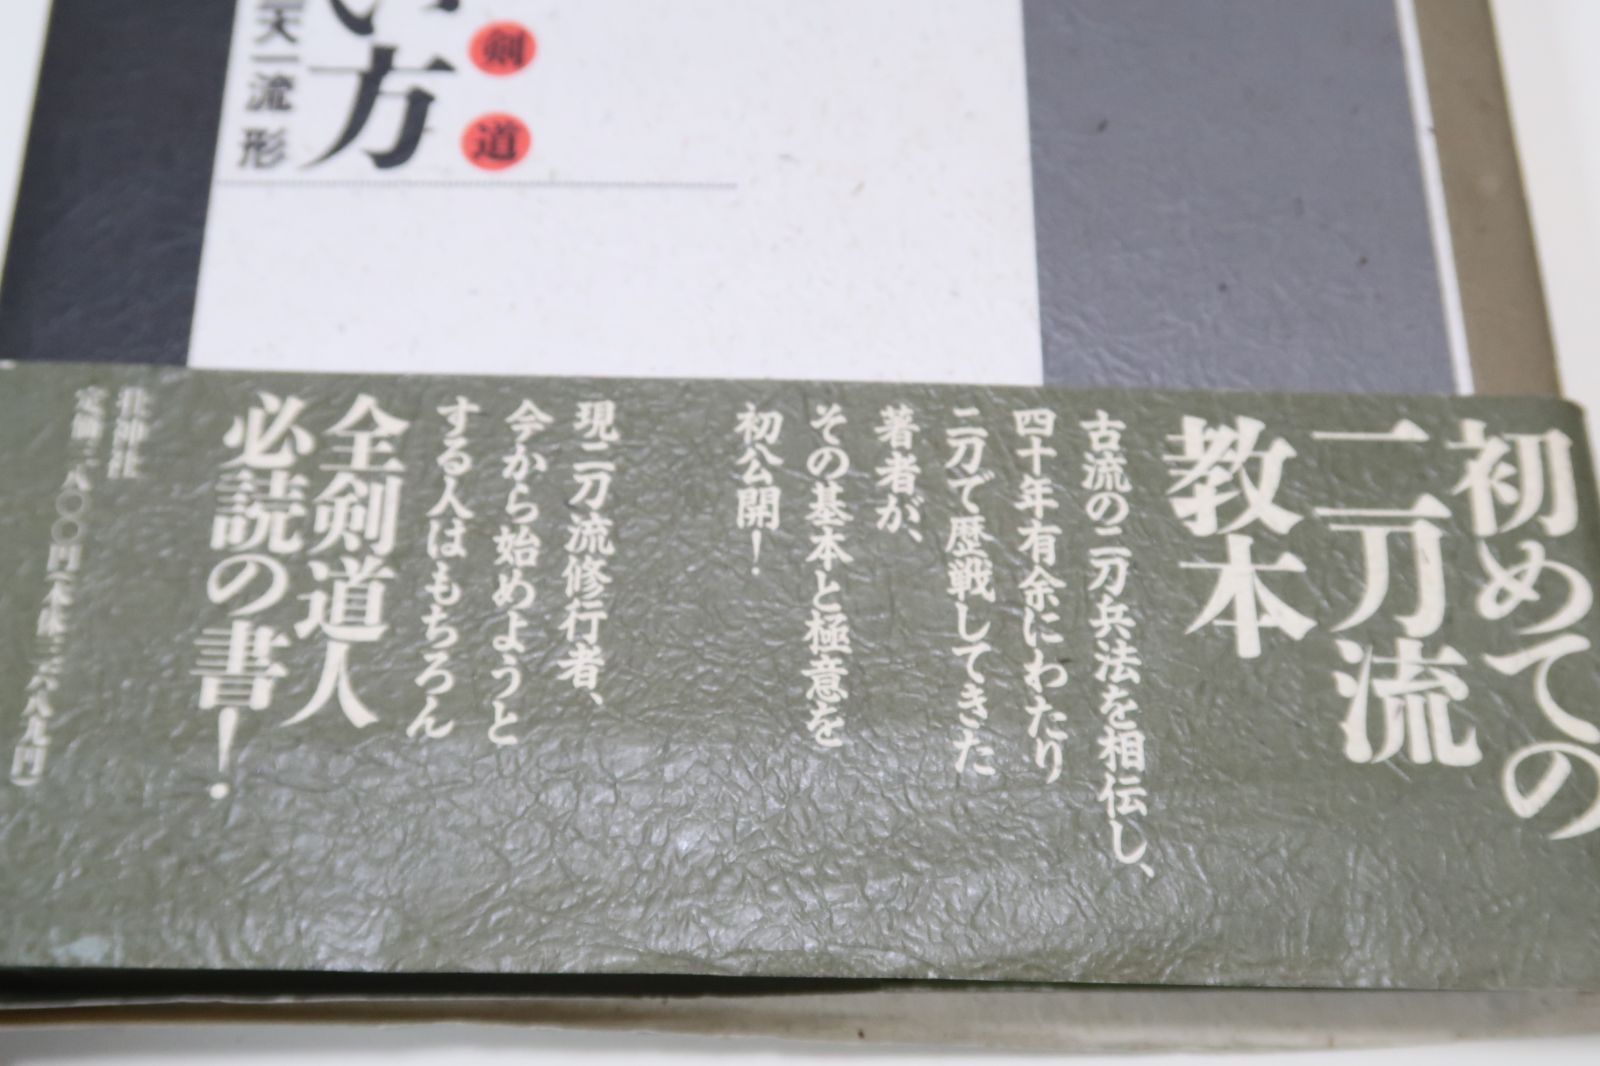 剣道
い方
天一流 形
初めての
二刀流
教本
古流の二刀兵法を相伝し、
四十年有余にわたり
二刀で歴戦してきた
著者が、
その基本と極意を
初公開！
現二刀流修行者、
今から始めようと
する人はもちろん
全剣道人
必読の書！
壮神社